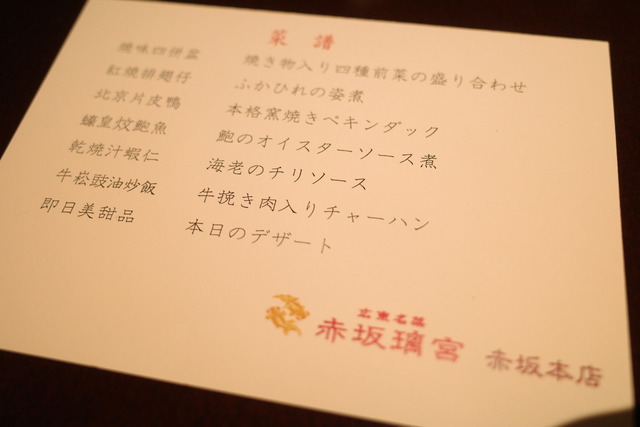 菜譜
燒味四併盆 焼き物入り四種前菜の盛り合わせ
紅燒排翅仔 ふかひれの姿煮
北京片皮鴨 本格窯焼きペキンダック
蠔皇炆鮑魚 鮑のオイスターソース煮
乾燒汁蝦仁 海老のチリソース
牛崧豉油炒飯 牛挽き肉入りチャーハン
即日美甜品 本日のデザート
広東名菜
赤坂璃宮 赤坂本店